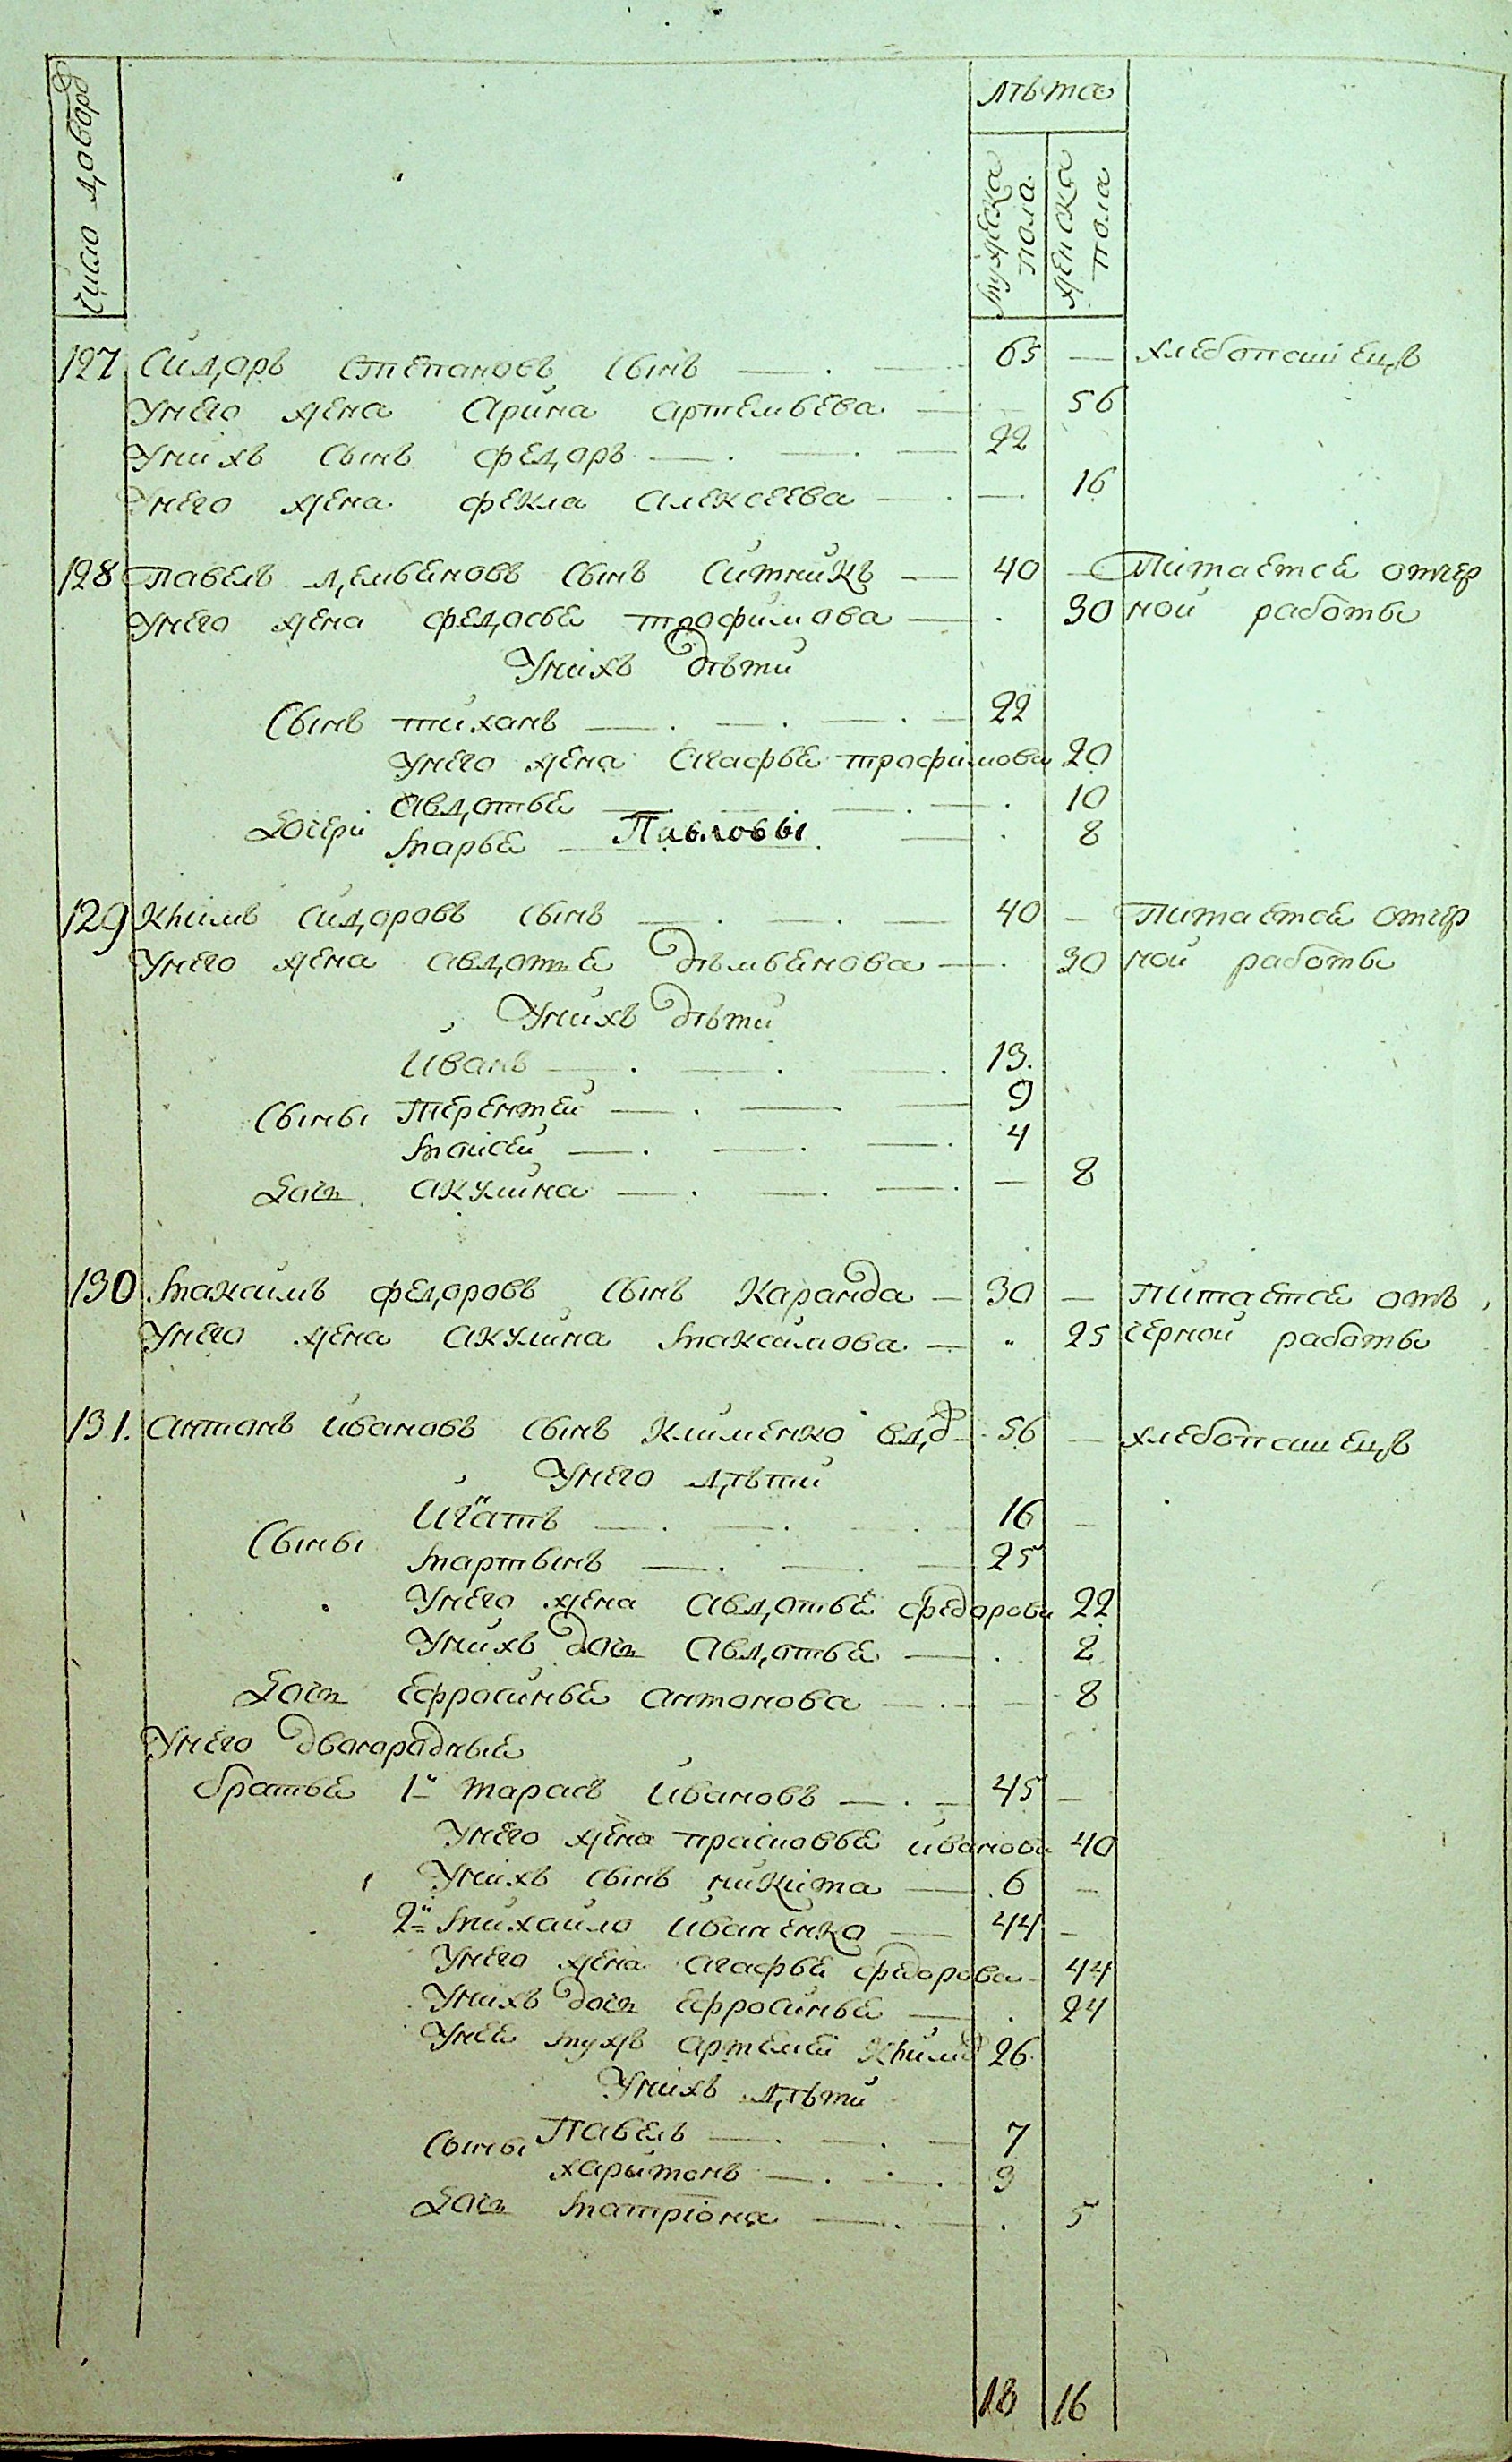 Число дворовъ
лѣта
мужеска пола
женска пола
127 Сидоръ Степановъ сынъ — 65 — хлебопашецъ
Унего жена Арина Артемьева — 56
Унихъ сынъ Федоръ — 22
Унего жена Фекла Алексеева — 16
128 Павелъ Демьяновъ сынъ Ситникъ — 40 — Питаетса отчер
Унего жена Федосья Трофимова — 30 ной работы
Унихъ дѣти
Сынъ Тиханъ — 22
Унего жена Агафья Трофимова 20
Авдотья — 10
Дочери
Марья — Павловы — 8
129 Климъ Сидоровъ сынъ — 40 — Питаетса отчер
Унего жена Авдотья Дѣмьянова — 30 ной работы
Унихъ дѣти
Иванъ — 13.
Сыны Терентей — 9
Моисей — 4
Дочь Акулина — 8
130 Максимъ Федоровъ сынъ Каранда — 30 — питаетса отъ
Унего жена Акулина Максимова — 25 черной работы
131. Антонъ Ивановъ сынъ Клименко вдо — 56 — хлебопашецъ
Унего дѣти
Игнатъ — 16 —
Сыны
Мартынъ — 25
Унего жена Авдотья Федорова 22
Унихъ дочь Авдотья — 2
Дочь Ефросинья Антонова — 8
Унего двоюродныя
братья 1й Тарасъ Ивановъ — 45 —
Унего жена Прасковья Иванова 40
Унихъ сынъ Никита — 6 —
2й Михайло Иваненко — 44 —
Унего жена Агафья Федорова — 44
Унихъ дочь Ефросинья — 24
Унея мужъ Артемей Климо 26
Унихъ дѣти
Сыны Павелъ — 7
Харитонъ — 3
Дочь Матріона — 5
18 16